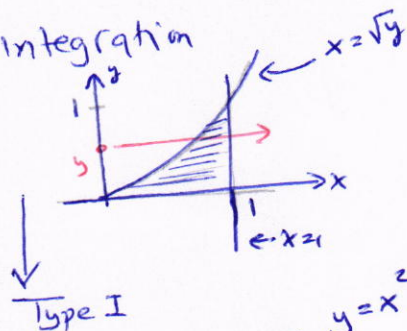 integration
x = √y
y
1
y
x
1
← x=1
Type I
y = x²